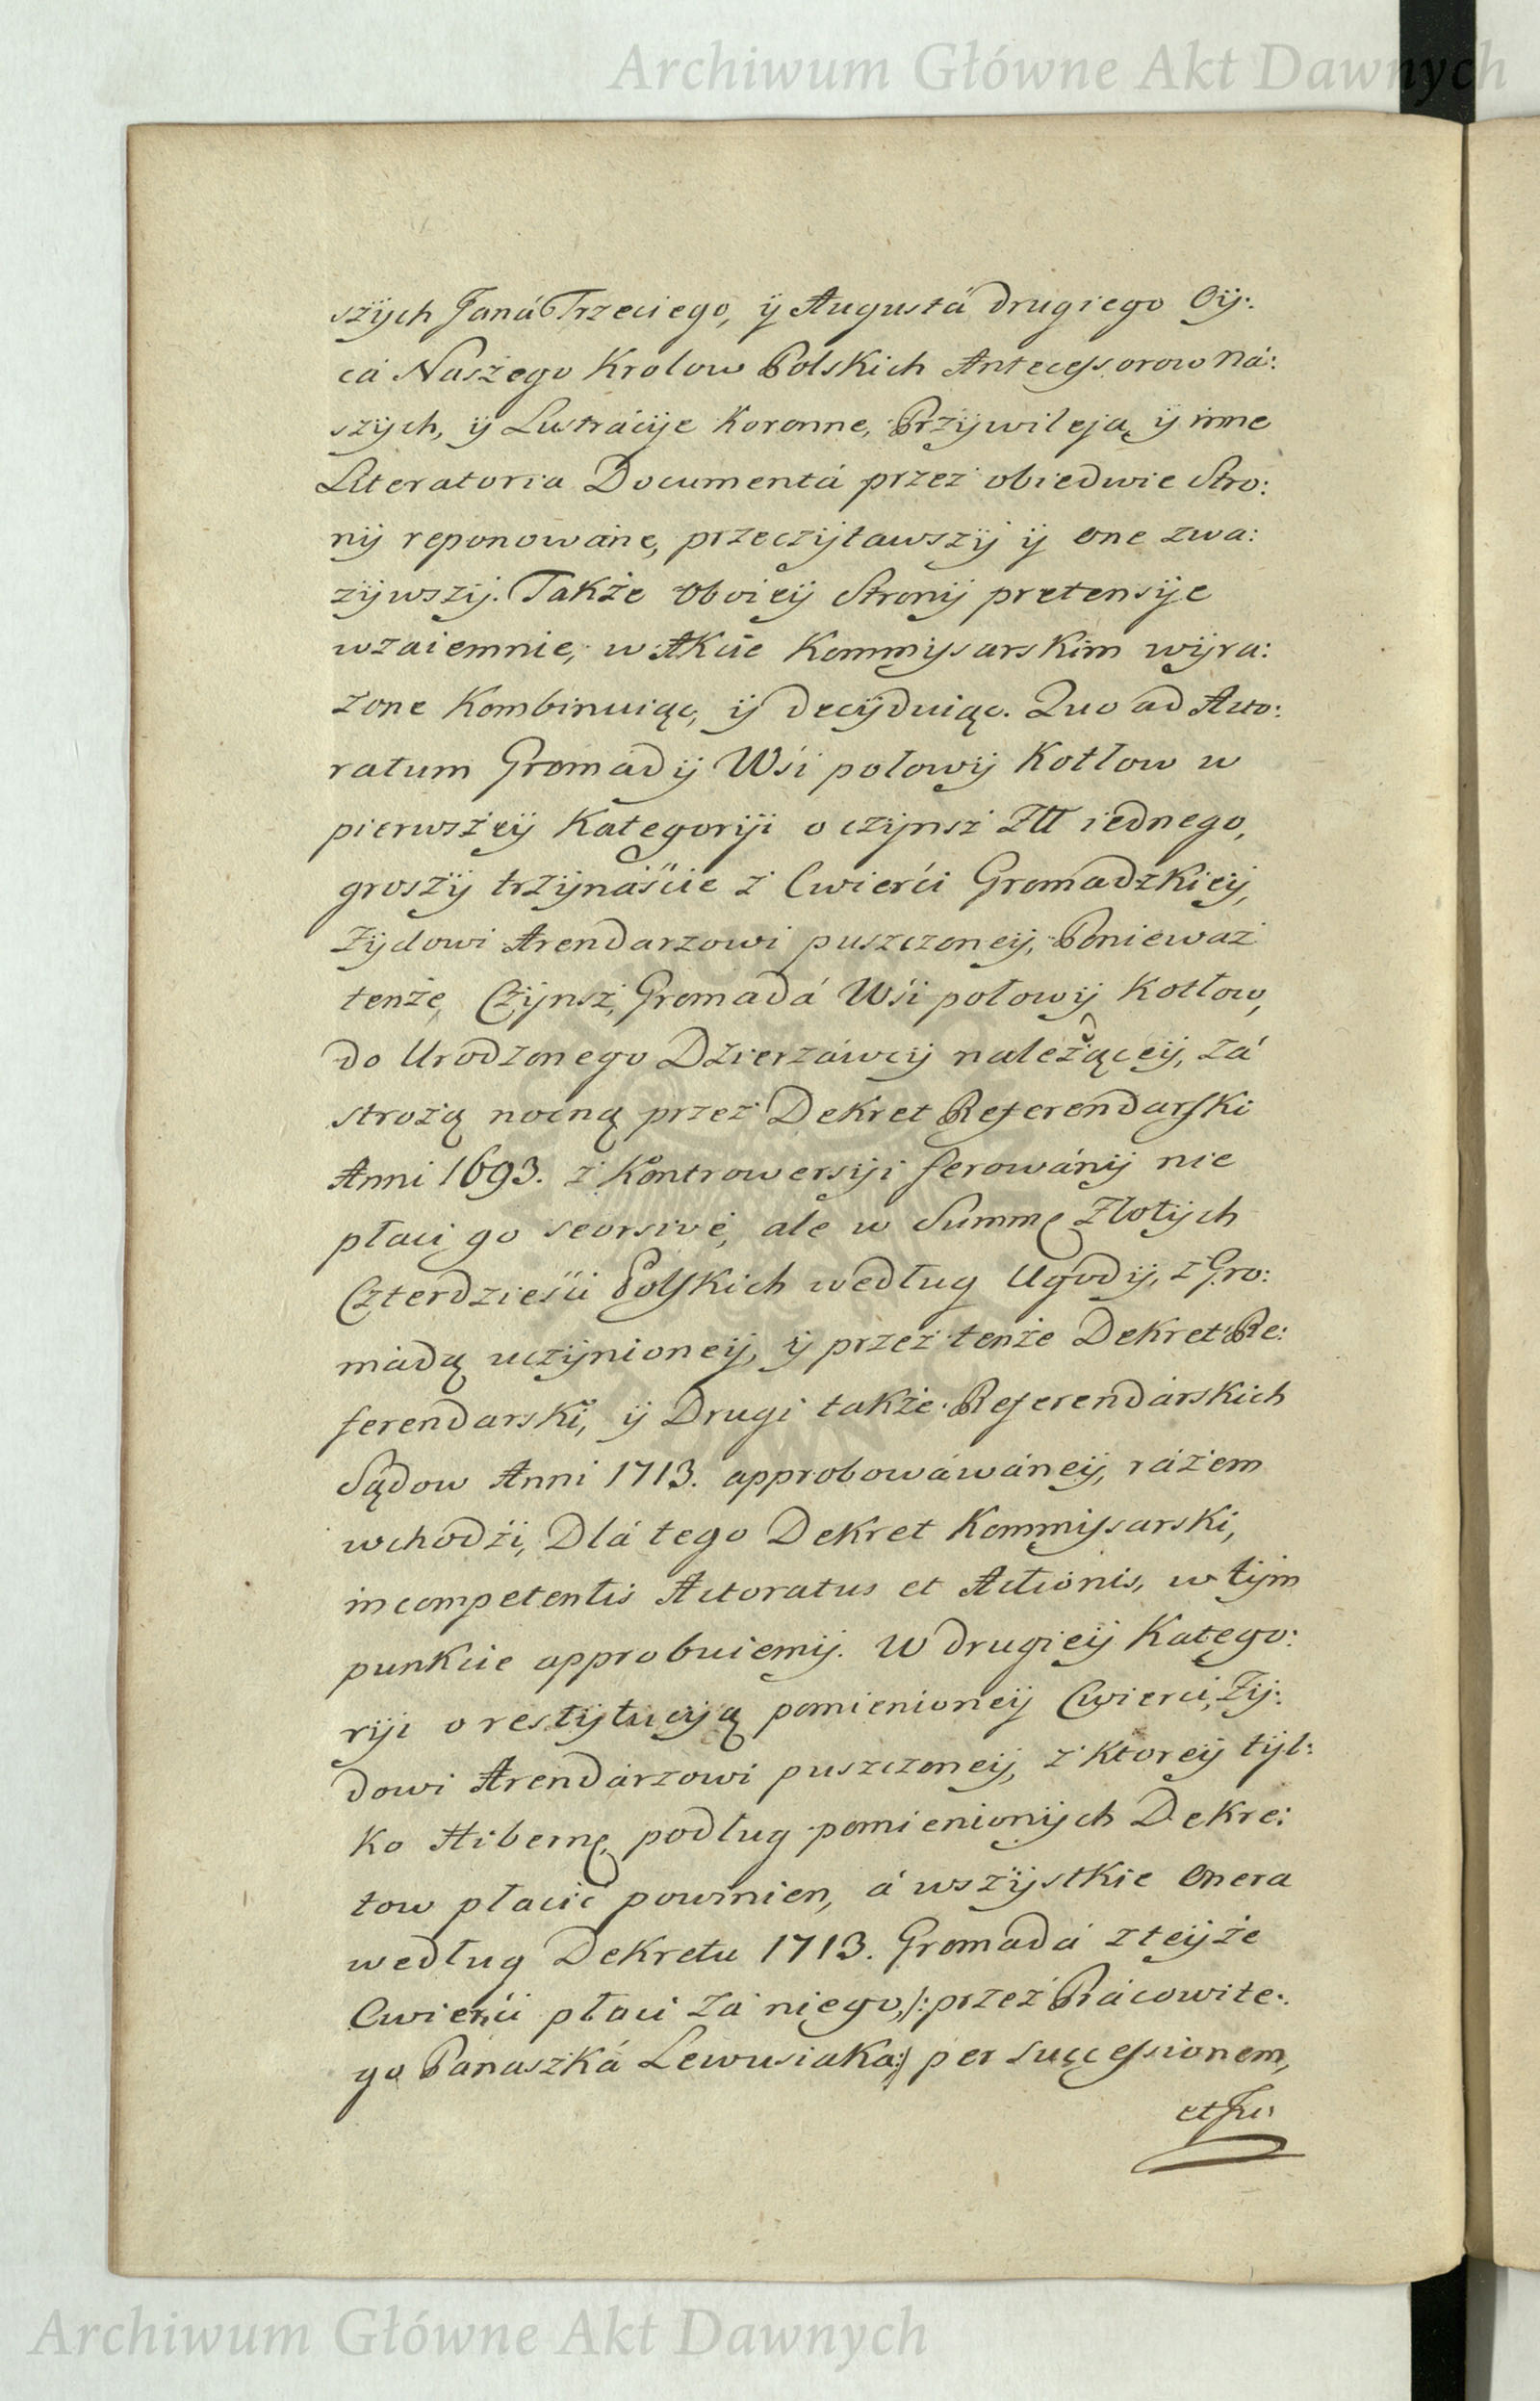 Archiwum Główne Akt Dawnych
szÿch Janá Trzeciego, ÿ Augustá drugiego Oÿ:
cá Naszego Krolow Polskich Antecessorow Ná:
szÿch, ÿ Lustrácÿe Koronne, Przÿwileja, ÿ inne
Literatoria Documentá przez obiedwie Stro:
nÿ reponowáne, przeczÿtawszÿ ÿ one zwa:
zÿwszÿ. Także oboieÿ Stronÿ pretensÿe
wzaiemnie, w Akcie Kommÿsarskim wÿra:
zone Kombinuiąc, ÿ decÿduiąc. Quo ad Acto:
ratum Gromádÿ Wśi połowÿ Kotłow w
pierwszeÿ Kategorÿi o czÿnsz Złł iednego,
groszÿ trzÿnáście z Cwierći Gromadzkieÿ,
Zÿdowi Arendarzowi puszczoneÿ, Ponieważ
tenże, Czÿnsz, Gromadá Wśi połowÿ Kotłow,
do Urodzonego Dzierzáwcÿ należąceÿ, zá
strożą nocną przez Dekret Referendarski
Anni 1693. z Kontrowersÿi ferowánÿ nie
płaci go seorsivè, ale w Summę Złotÿch
Czterdzieści Polskich według Ugodÿ, z Gro:
mádą uczÿnioneÿ, ÿ przez tenże Dekret Re:
ferendarski, ÿ Drugi także Referendárskich
Sądow Anni 1713. approbowáwáneÿ, rázem
wchodźi, Dlá tego Dekret Kommÿssarski,
incompetentis Actoratus et Actionis, w tÿm
punkcie approbuiemÿ. W drugieÿ Katego:
rÿi o restÿtucÿą pomienioneÿ Cwierci, Zÿ:
dowi Arendárzowi puszczoneÿ, z Ktoreÿ tÿl:
ko Hibernę, podług pomienionÿch Dekre:
tow płacić powinien, á wszÿstkie Onera
według Dekretu 1713. Gromadá z teÿże
Cwierći płaci zá niego, /: przez Prácowite:
go Panaszká Lewusiaka :/ per successionem,
et Ju:
Archiwum Główne Akt Dawnych